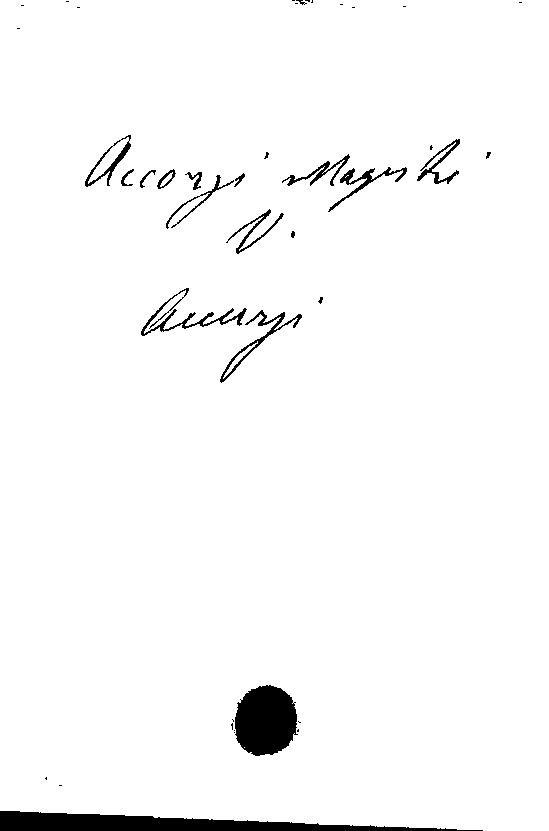 Accorzi Magistri
V.
Accurzi